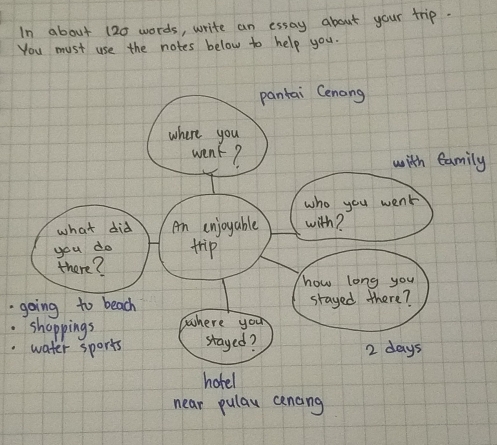 In about 120 words, write an essay about your trip.
You must use the notes below to help you.
pantai Cenang
where you
went?
with family
who you went
with?
what did
you do
there?
An enjoyable
trip
how long you
stayed there?
2 days
• going to beach
• shoppings
• water sports
where you
stayed?
hotel
near pulau cenang